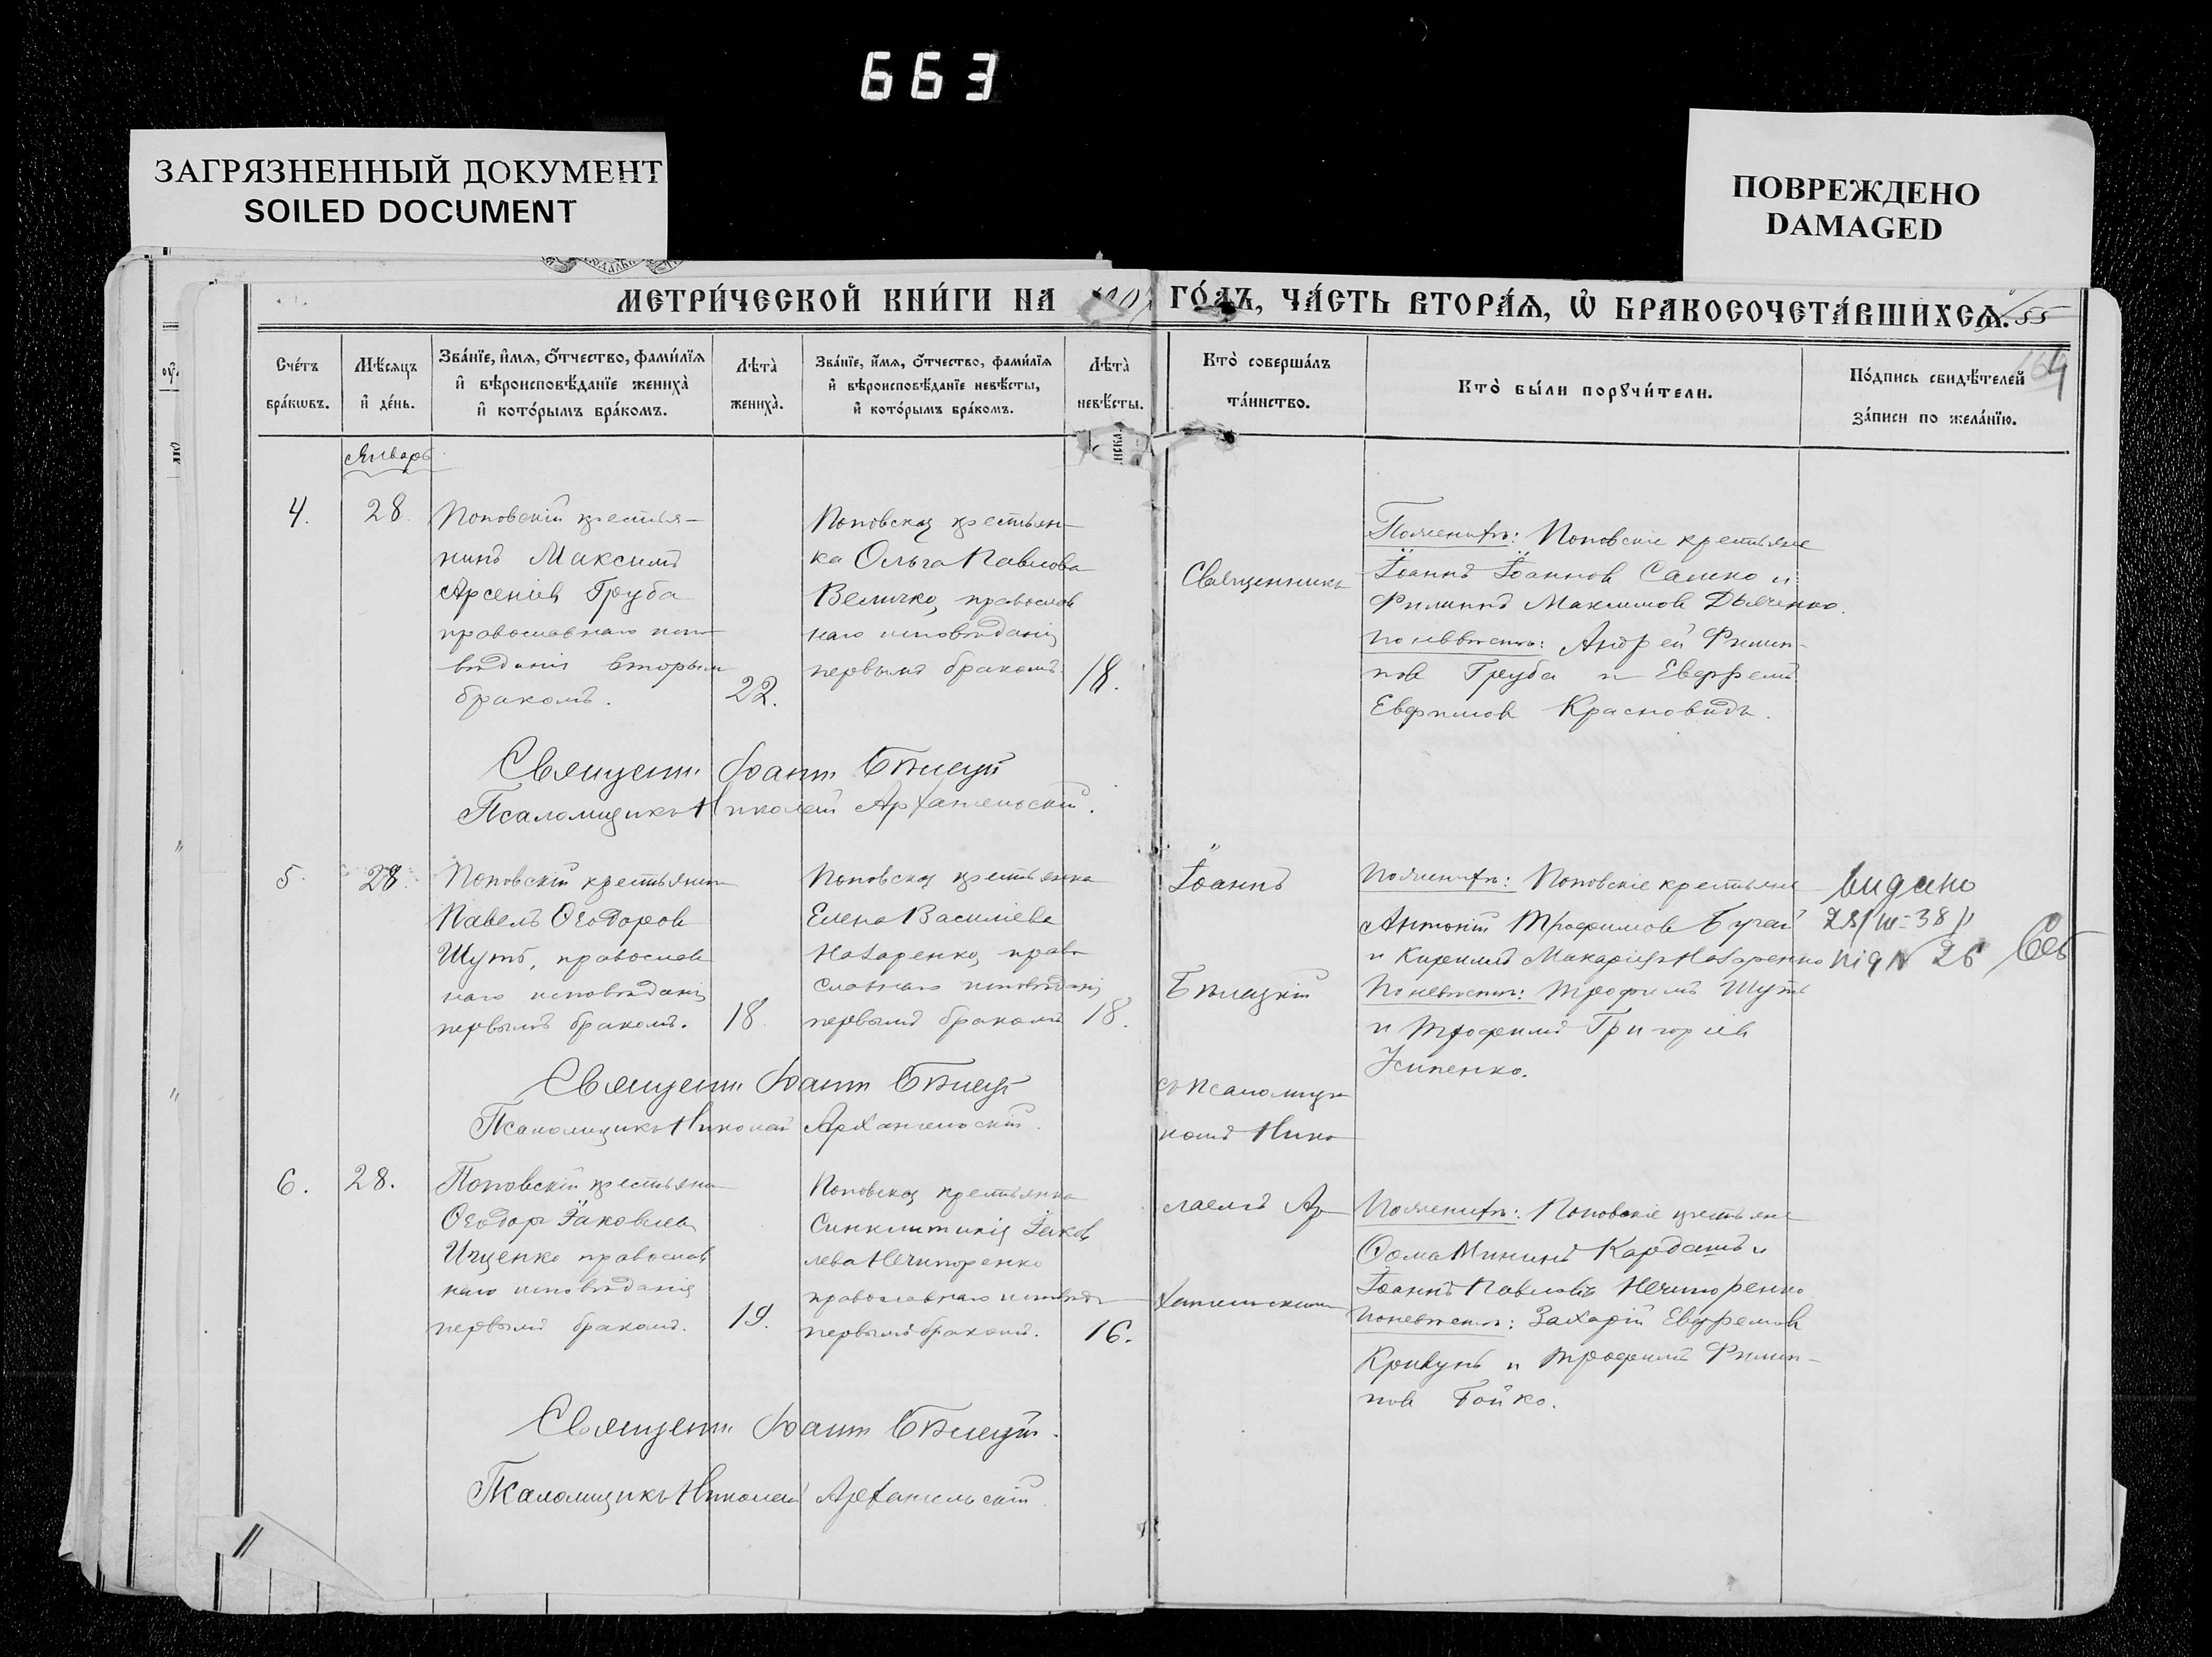 663
ЗАГРЯЗНЕННЫЙ ДОКУМЕНТ
SOILED DOCUMENT
ПОВРЕЖДЕНО
DAMAGED
МЕТРИ́ЧЕСКОЙ КНИ́ГИ НА ГО́ДЪ, ЧА́СТЬ ВТОРА́Ѧ, Ѽ БРАКОСОЧЕТА́ВШИХСѦ.
55
Счётъ бра́кѡвъ.
Мѣ́сяцъ и҆ де́нь.
Зва́нїе, и҆́мѧ, ѻ҆́тчество, фами́лїѧ
и҆ вѣроисповѣ́данїе жениха̀
и҆ кото́рымъ бра́комъ.
Лѣта̀ жениха̀.
Зва́нїе, и҆́мѧ, ѻ҆́тчество, фами́лїѧ
и҆ вѣроисповѣ́данїе невѣ́сты,
и҆ кото́рымъ бра́комъ.
Лѣта̀ невѣ́сты.
Кто̀ соверша́лъ та́инство.
Кто̀ бы́ли порꙋчи́тели.
По́дпись свидѣ́телей за́писи по жела́нїю.
Январь
4.
28
Поповскій крестья-
нинъ Максимъ
Арсеніев Груба
православнаго испо-
вѣданія вторым
бракомъ.
22.
Поповская крестьян-
ка Ольга Павлова
Величко, православ
наго исповѣданія
первымъ бракомъ.
18.
Священникъ
По женихѣ: Поповскіе крестьяне
Іоаннъ Іоаннов Сашко и
Филиппъ Максимов Дьяченко.
по невѣстѣ: Андрей Филип-
пов Груба и Евфремъ
Евфимов Красновидъ.
Священ. Іоанн Бѣлецкій
Псаломщикъ Николай Архангельскій.
5.
28.
Поповскій крестьянин
Павелъ Ѳеодоров
Шуть, православ
наго исповѣданія
первымъ бракомъ.
18
Поповская крестьянка
Елена Василіева
Назаренко, право
славнаго исповѣданія
первымъ бракомъ
18.
Іоаннъ
Бѣлецкій
По женихѣ: Поповскіе крестьяне
Антоній Трофимов Бугай
и Кириллъ Макаріев Назаренко
По невѣстѣ: Трофимъ Шуть
и Трофимъ Григоріев
Усипенко.
видано
28/III-38 р
під № 26
Священ. Іоанн Бѣлецкій
Псаломщикъ Николай Архангельскій.
съ псаломщи
комъ Нико
6.
28.
Поповскій крестьянин
Ѳеодоръ Іаковлев
Ищенко православ
наго исповѣданія
первымъ бракомъ.
19.
Поповская крестьянка
Синклитикія Іаков
лева Нечипоренко
православнаго исповѣд
первымъ бракомъ.
16.
лаемъ Ар
хангельскимъ
По женихѣ: Поповскіе крестьяне
Ѳома Мининъ Кардашъ и
Іоаннъ Павловъ Нечипоренко
по невѣстѣ: Захарій Евфремов
Кривунъ и Трофимъ Филип-
пов Бойко.
Священ. Іоанн Бѣлецкій.
Псаломщикъ Николай Архангельскій.